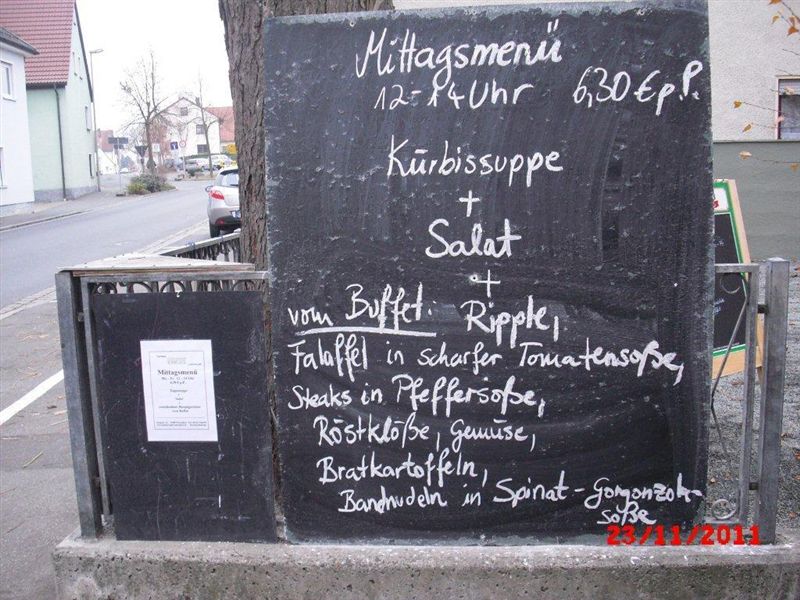 Mittagsmenü
12-14 Uhr 6,30 € p.P.
Kürbissuppe
+
Salat
+
vom Buffet: Ripple,
Falaffel in scharfer Tomatensoße,
Steaks in Pfeffersoße,
Röstklöße, Gemüse,
Bratkartoffeln,
Bandnudeln in Spinat-Gorgonzola-
soße
Mittagsmenü
23/11/2011